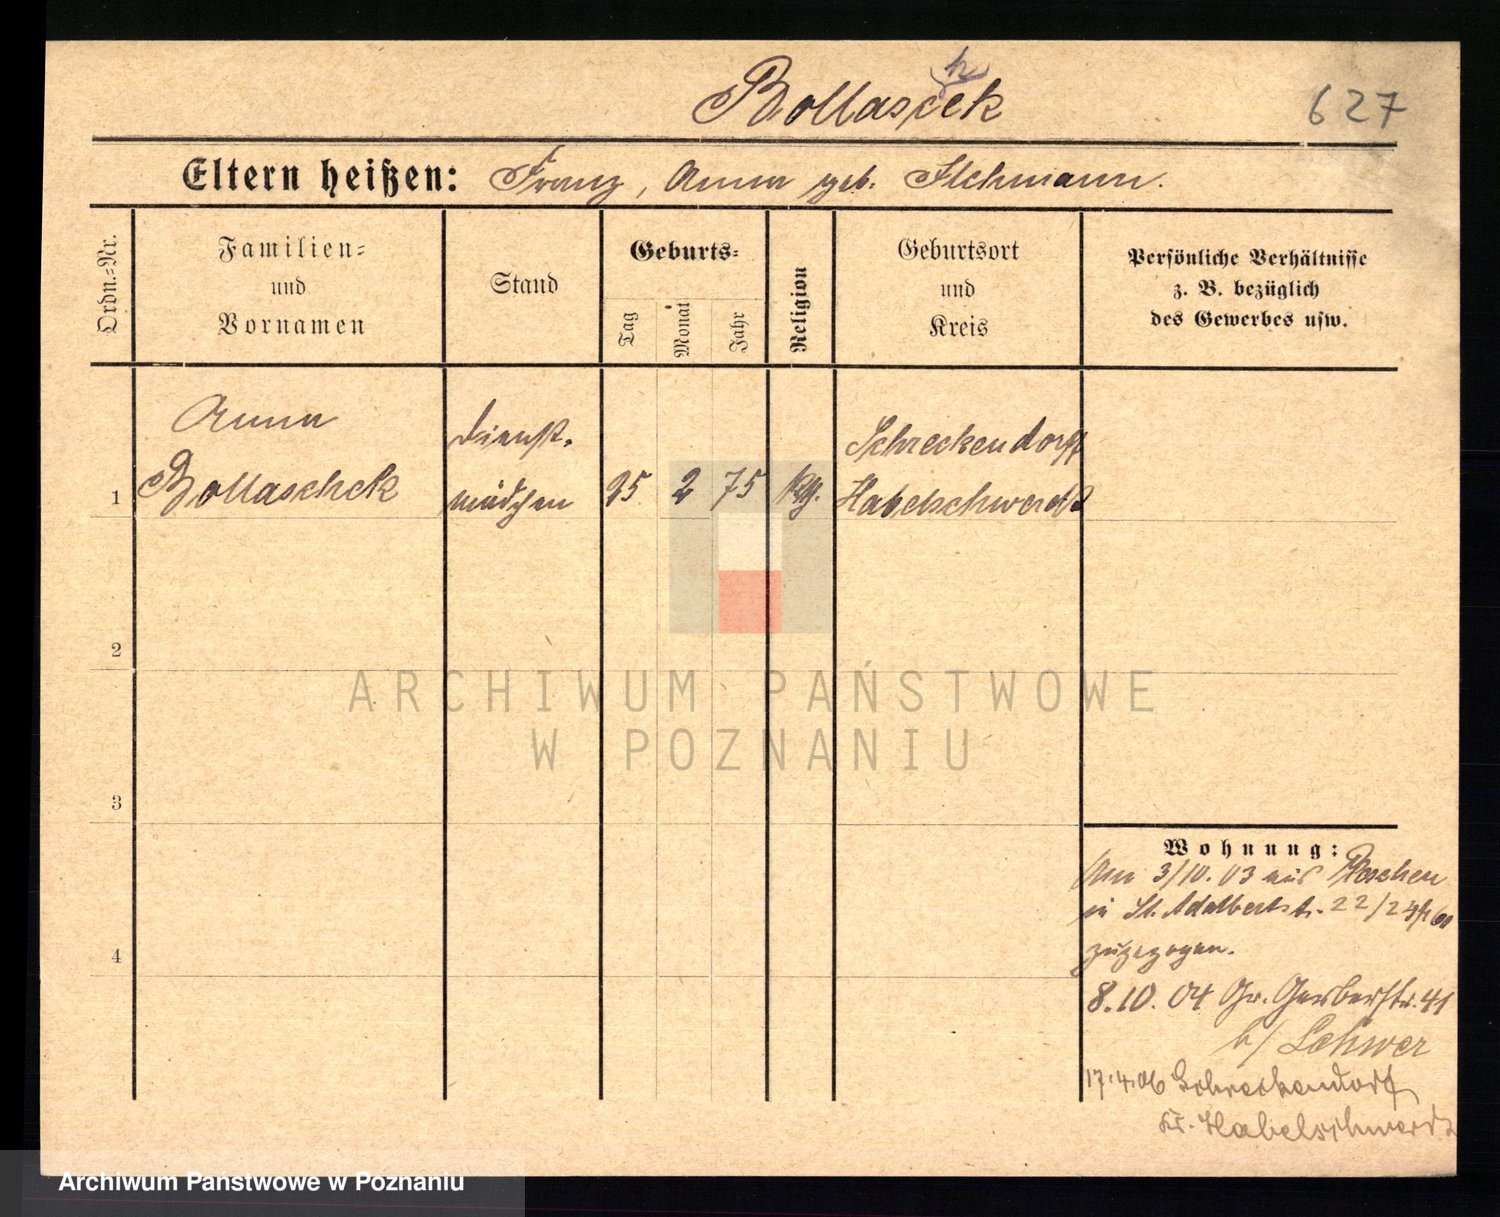 Bollascek
h
627
Eltern heißen: Franz, Anna geb. Ilchmann.
Ordn.-Nr.
Familien-
und
Vornamen
Stand
Geburts-
Tag
Monat
Jahr
Religion
Geburtsort
und
Kreis
Persönliche Verhältnisse
z. B. bezüglich
des Gewerbes usw.
1
Anna
Bollaschek
Dienst-
mädchen
25
2
75
kath.
Schreckendorf
Habelschwerdt
2
3
4
ARCHIWUM PAŃSTWOWE
W POZNANIU
Wohnung:
Am 3/10.03 aus
in St. Adalbertstr. 22/23
zugezogen.
8.10.04 Gr. Gerberstr. 41
b/ Lehwer
17.4.06 Schreckendorf
Kr. Habelschwerdt
Archiwum Państwowe w Poznaniu